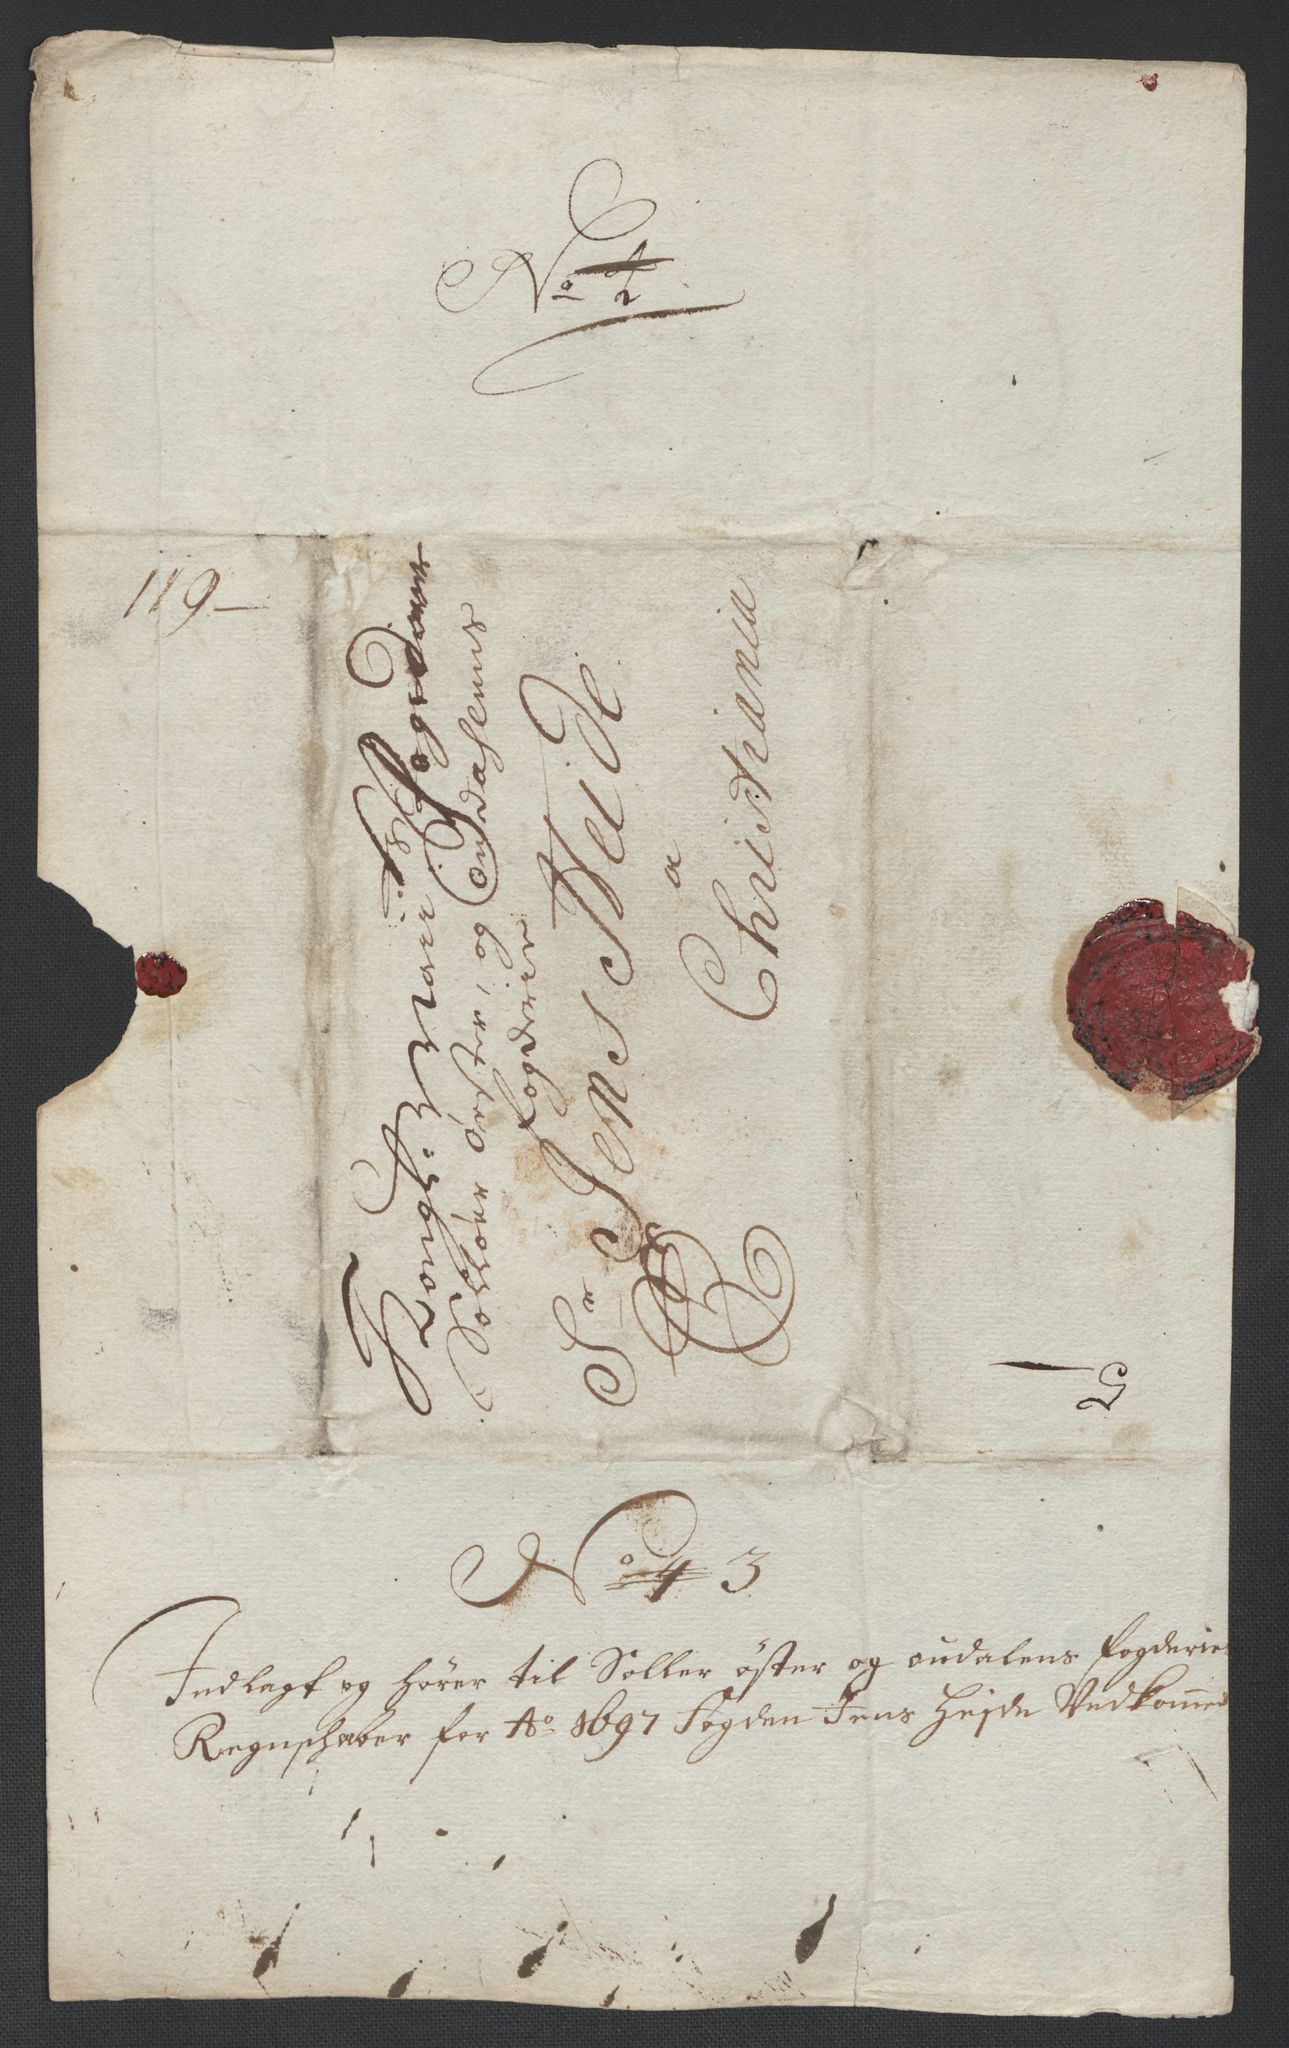 No 4
2
119
Kongl: Maÿ:ts Fogd over
Soløer Øster, og Oudahlens
fogderie
Sr Jens Heide
a
Christiania
5
No 4 3
Indlagt og hører til Soller öster og oudalens fogderies
Regnschaber for Ao 1697 Fogden Jens Hejde Vedkommend